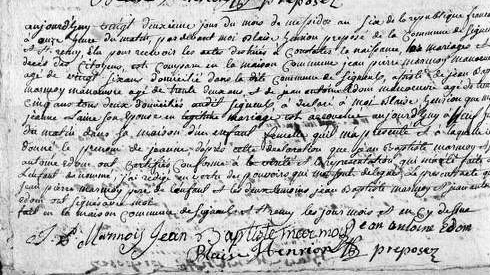 preposez
aujourdhuy vingt deuxieme jour du mois de messidor an six de la republique francoise
a onze heure du matin, par devant moi Blaise henrion preposé de la Commune de Ligneuls
St remy, élu pour recevoir les actes destinés a Constater la naissance, les mariages et
decès des Citoyens, est Comparu en la maison Commune jean pierre marmoy manoeuvre
agé de vingt six ans domicilié dans la dite Commune de Ligneuls, assisté de jean Baptiste
marmoy manoeuvre agé de trente deux ans, et de jean antoine Edom manoeuvre agé de trente
cinq ans tous deux domiciliés audit Ligneuls, a déclaré a moi Blaise henrion que
jeanne son Epouse en mariage est accouchée aujourdhuy a neuf
du matin dans sa maison d'un enfant femelle qu'il m'a presenté et a laquelle
donné le prenom de jeanne d'après cette declaration que jean Baptiste marmoy et
antoine Edom ont Certifiés Conforme a la verité et la representation qui m'a été faite de
L'enfant denommé, j'ai rédigé en vertu des pouvoirs qui m'ont delegués le present acte que
jean pierre marmoy pere de l'enfant et les deux temoins jean Baptiste marmoy et jean antoine
edom ont signés avec moi
fait en la maison Commune de Ligneuls St remy les jour mois et an Cy dessus
Marmois jean Baptiste marmois jean antoine Edom
Blaise henrion preposez